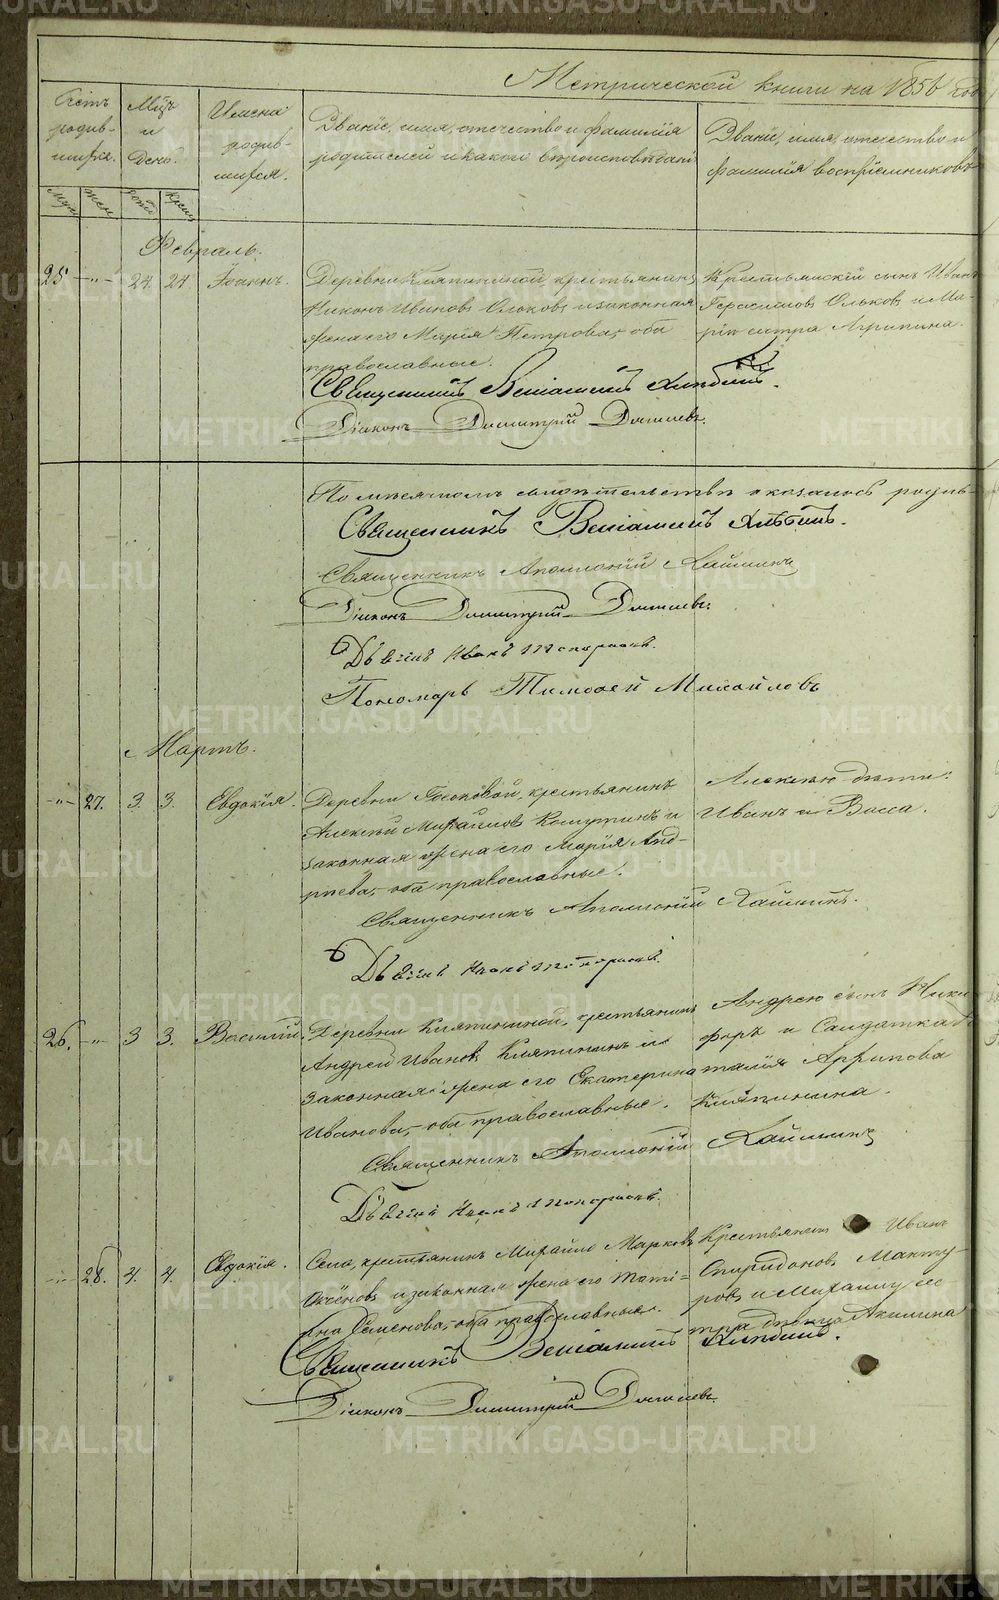 Метрической книги на 1856 годъ
Счетъ родив-
шихся.
Муж.
жен.
Мѣц.
и
день.
рожд.
крещ.
Имена
родив-
шихся.
Званіе, имя, отечество и фамилія
родителей и какого вѣроисповѣданія
Званіе, имя, отечество и
фамилія воспріемниковъ
Февраль.
25 -"- 24. 24 Іоаннъ.
Деревни Кляпининой крестьянинъ
Никонъ Ивановъ и законная
жена его Марія Петрова, оба
православные.
Крестьянскій сынъ Иванъ
Герасимовъ и Ма-
ріи сестра Агрипина.
Священникъ Веніаминъ
Діаконъ Димитрій
По мѣсячномъ свидѣтельствѣ оказалось родив-
Священникъ Веніаминъ
Священникъ Аполлоній
Діаконъ Димитрій
Дьячекъ Иванъ
Пономарь Тимофей Михайловъ
Мартъ.
-"- 27. 3. 3. Евдокія.
Деревни крестьянинъ
Алексѣй Михайловъ и
законная жена его Марія Анд-
реева, оба православные.
Алексѣю дѣти:
Иванъ и Васса.
Священникъ Аполлоній
Дьячекъ Иванъ
26. -"- 3 3. Василій.
Деревни Кляпининой, крестьянинъ
Андрей Ивановъ Кляпининъ и
законная жена его Екатерина
Иванова, оба православные.
Андрею сынъ Ники-
форъ и Солдатка На-
талія Архипова
Кляпинина.
Священникъ Аполлоній
Дьячекъ Иванъ
-"- 28. 4. 4. Евдокія.
Села, крестьянинъ Михайло Марковъ
и законная жена его Тати-
ана Семенова, оба православные.
Крестьянинъ Иванъ
Спиридоновъ Манту-
ровъ и Михаилу сес-
тра дѣвица Акилина
Священникъ Веніаминъ
Діаконъ Димитрій
METRIKI.GASO-URAL.RU